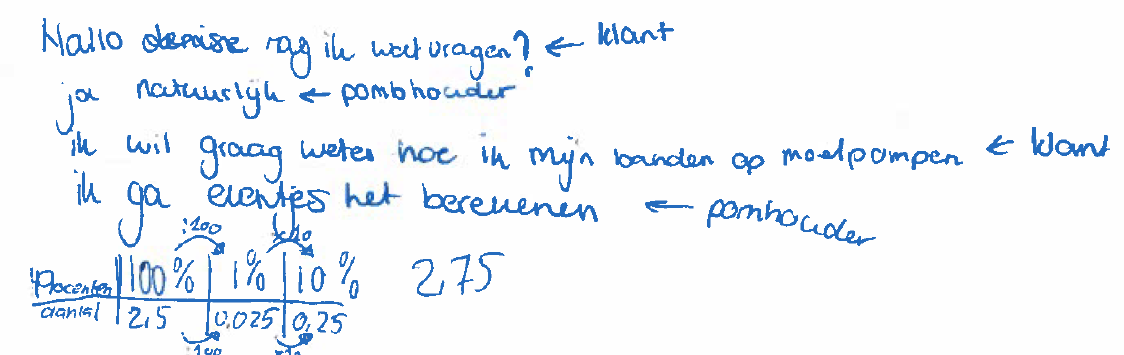 Hallo denise mag ik wat vragen? ← klant
ja natuurlijk ← pombhouder
ik wil graag weten hoe ik mijn banden op moet pompen ← klant
ik ga eventjes het berekenen ← pomhouder
:100 x10
Procenten 100% 1% 10% 2,75
aantal 2,5 0,025 0,25
:100 x10